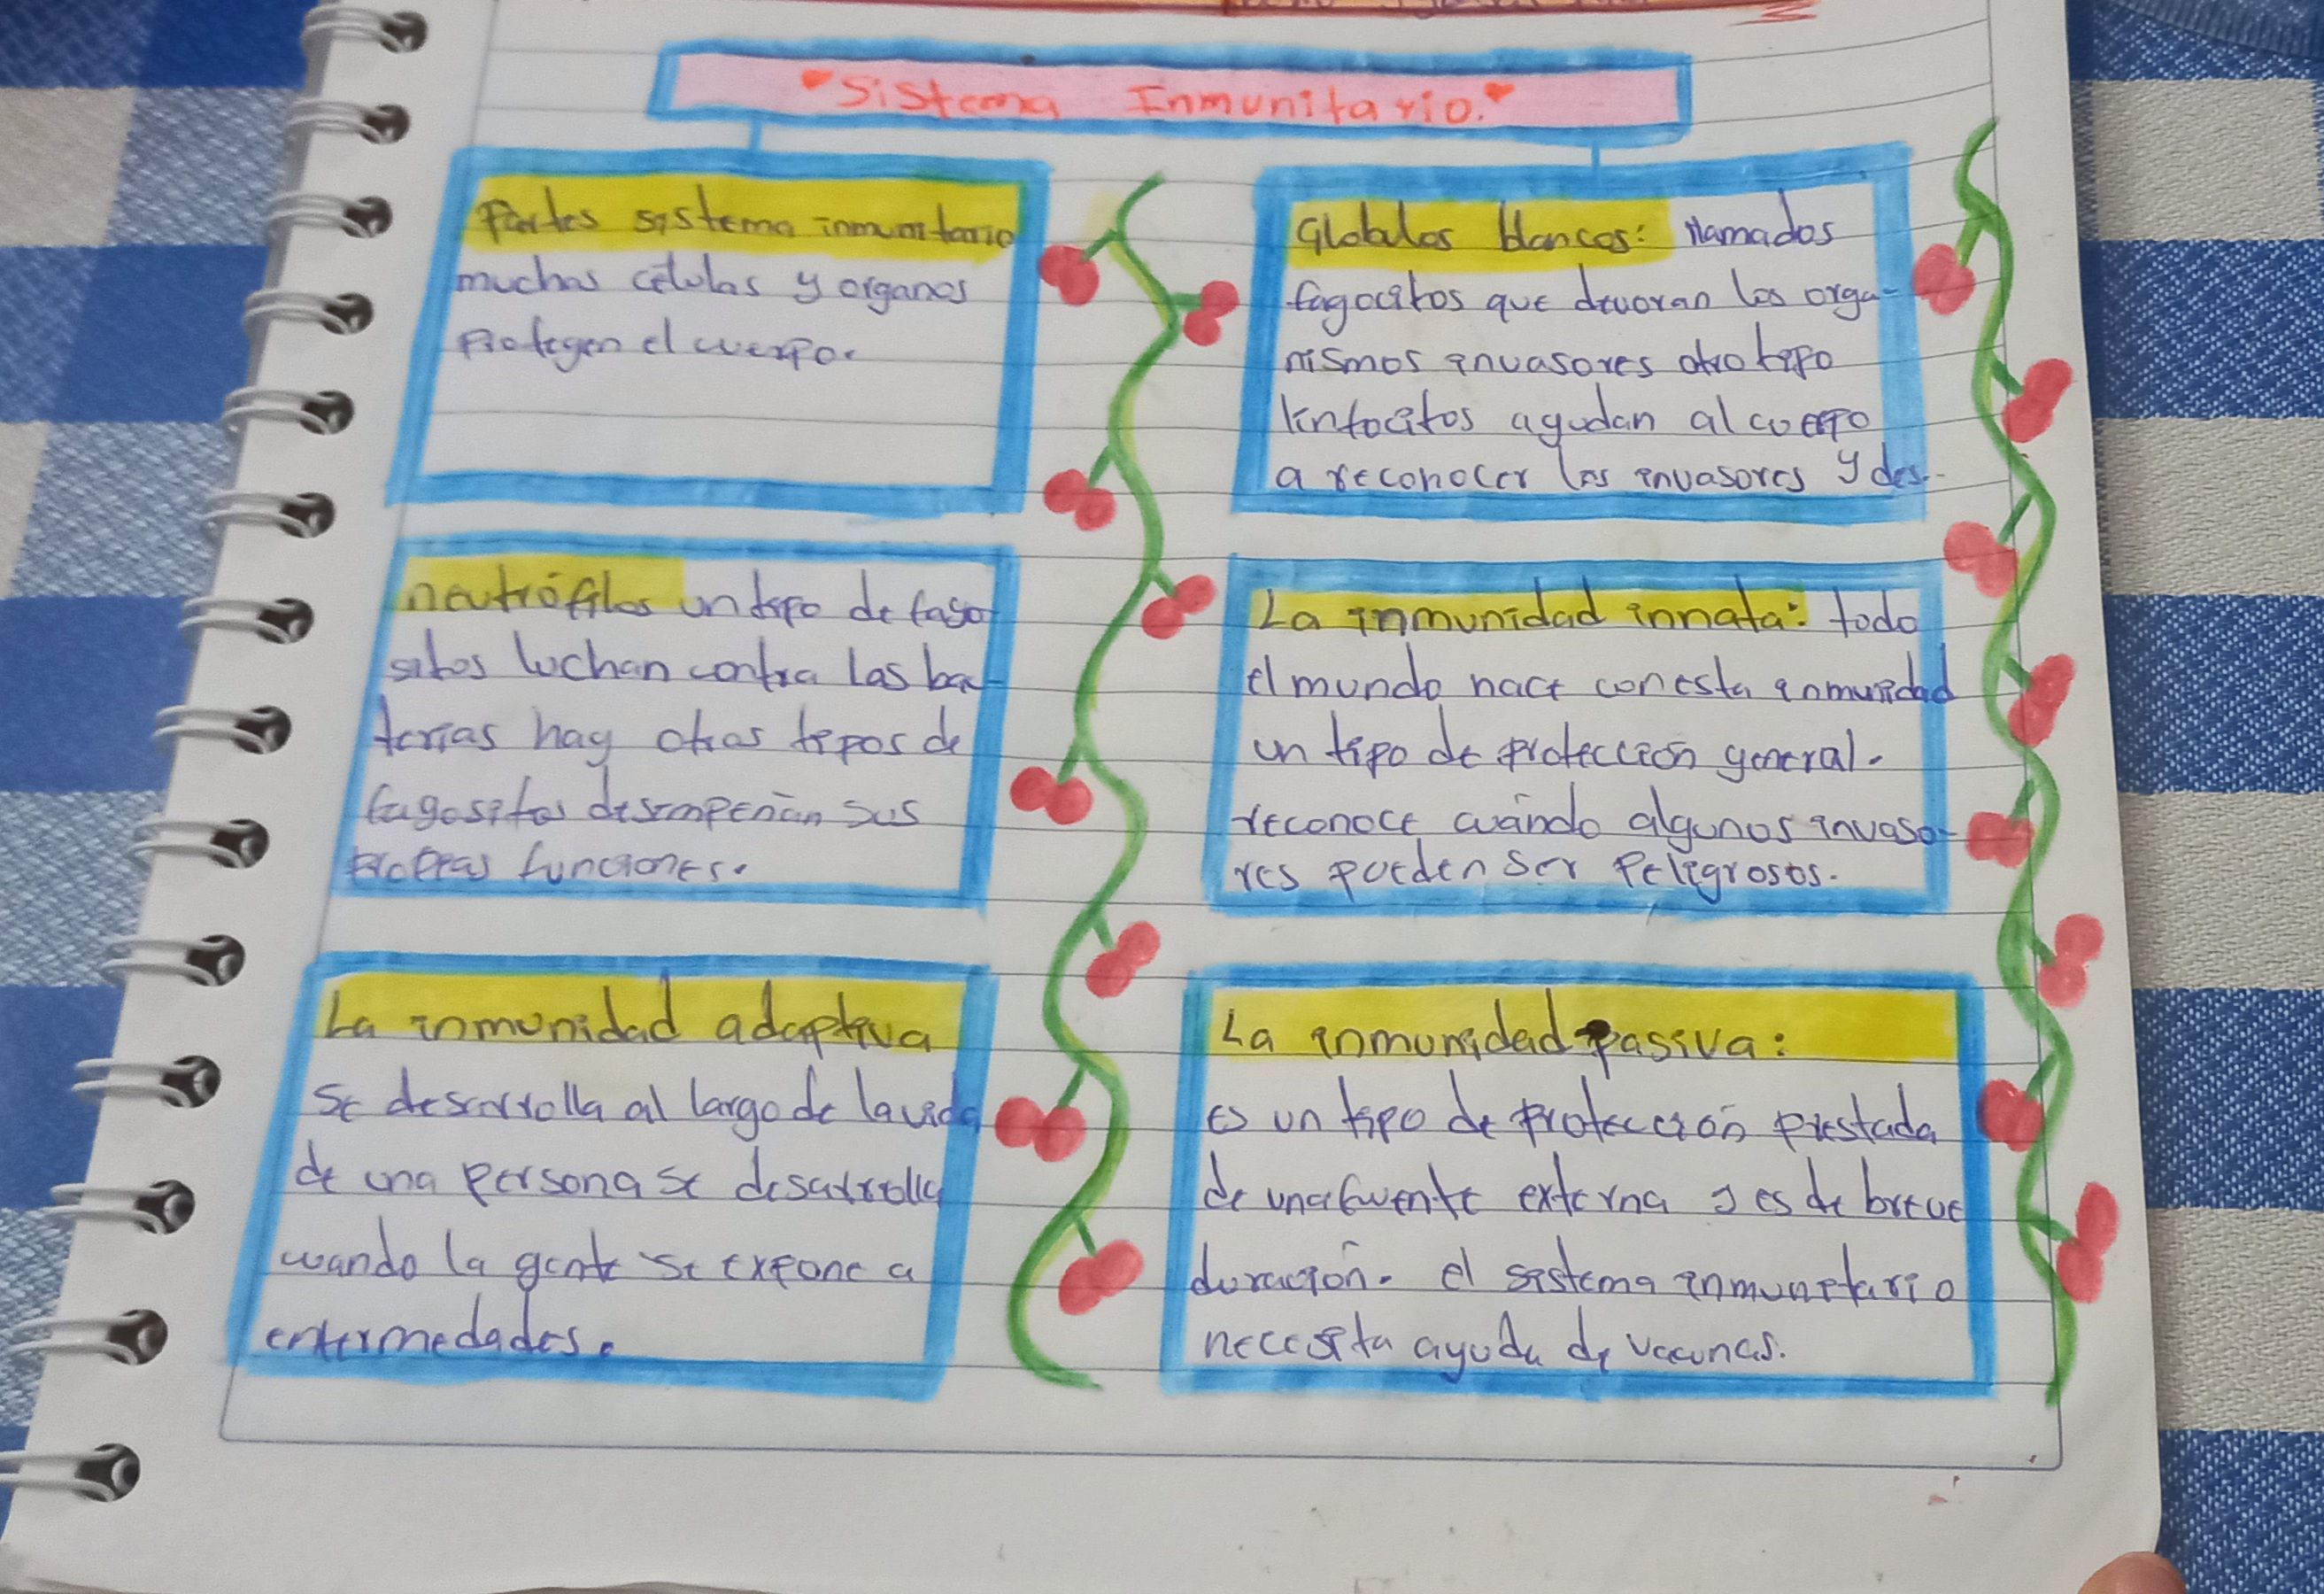 Sistema Inmunitario.
Partes sistema inmunitario
muchas células y organos
Protegen el cuerpo.
Globulos blancos: llamados
fagocitos que devoran los orga-
nismos invasores otro tipo
linfocitos ayudan al cuerpo
a reconocer los invasores y des..
neutrófilos un tipo de fago
sitos luchan contra las bac-
terias hay otros tipos de
fagositos desempeñan sus
propias funciones.
La inmunidad innata: todo
el mundo nace con esta inmunidad
un tipo de protección general.
reconoce cuándo algunos invaso-
res pueden ser Peligrosos.
La inmunidad adaptiva
se desarrolla al largo de la vida
de una persona se desarrolla
cuando la gente se expone a
enfermedades.
La inmunidad Pasiva:
es un tipo de protección prestada
de una fuente externa y es de breve
duración. el sistema inmunitario
necesita ayuda de vacunas.